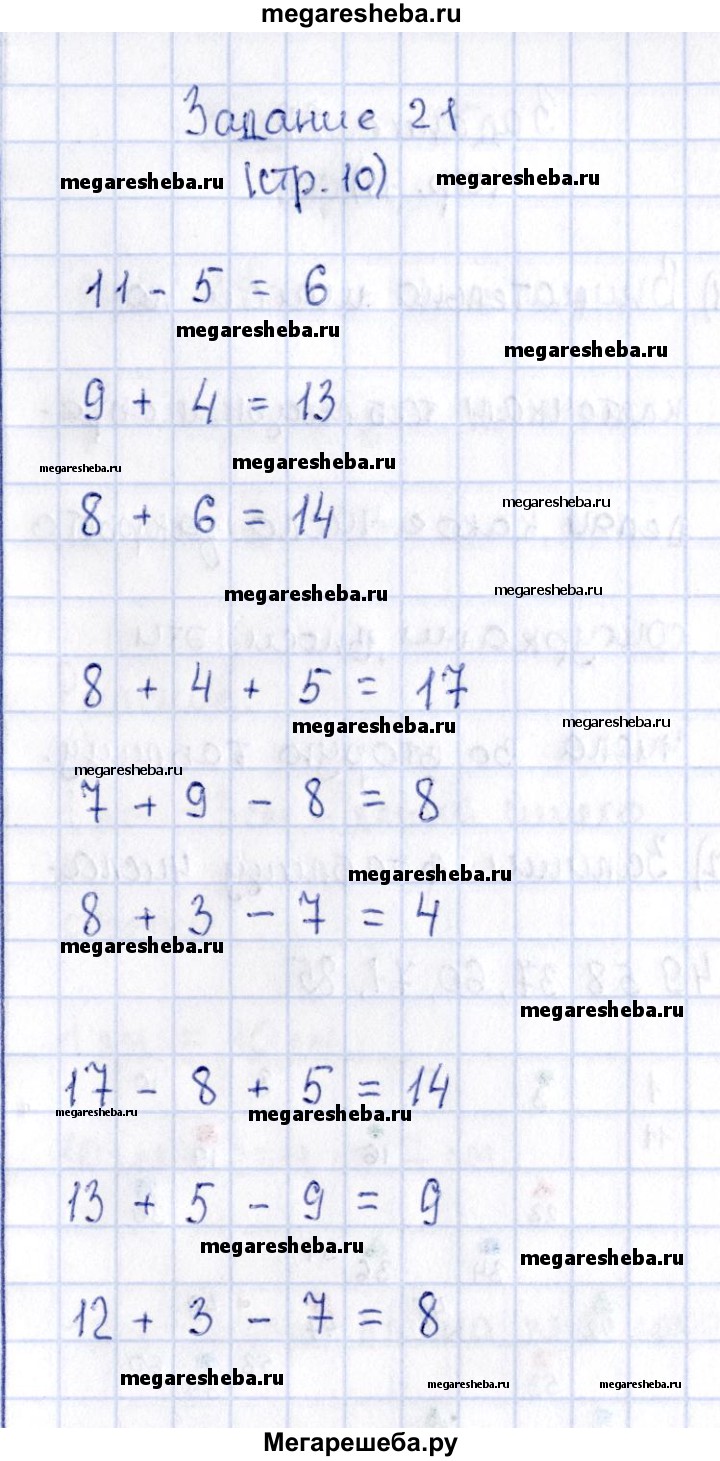 megaresheba.ru
Задание 21
megaresheba.ru (стр. 10) megaresheba.ru
11 - 5 = 6
megaresheba.ru
megaresheba.ru
9 + 4 = 13
megaresheba.ru megaresheba.ru
8 + 6 = 14 megaresheba.ru
megaresheba.ru megaresheba.ru
8 + 4 + 5 = 17
megaresheba.ru megaresheba.ru
megaresheba.ru
7 + 9 - 8 = 8
megaresheba.ru
8 + 3 - 7 = 4
megaresheba.ru
megaresheba.ru
17 - 8 + 5 = 14
megaresheba.ru megaresheba.ru
13 + 5 - 9 = 9
megaresheba.ru megaresheba.ru
12 + 3 - 7 = 8
megaresheba.ru megaresheba.ru megaresheba.ru
Мегарешеба.ру